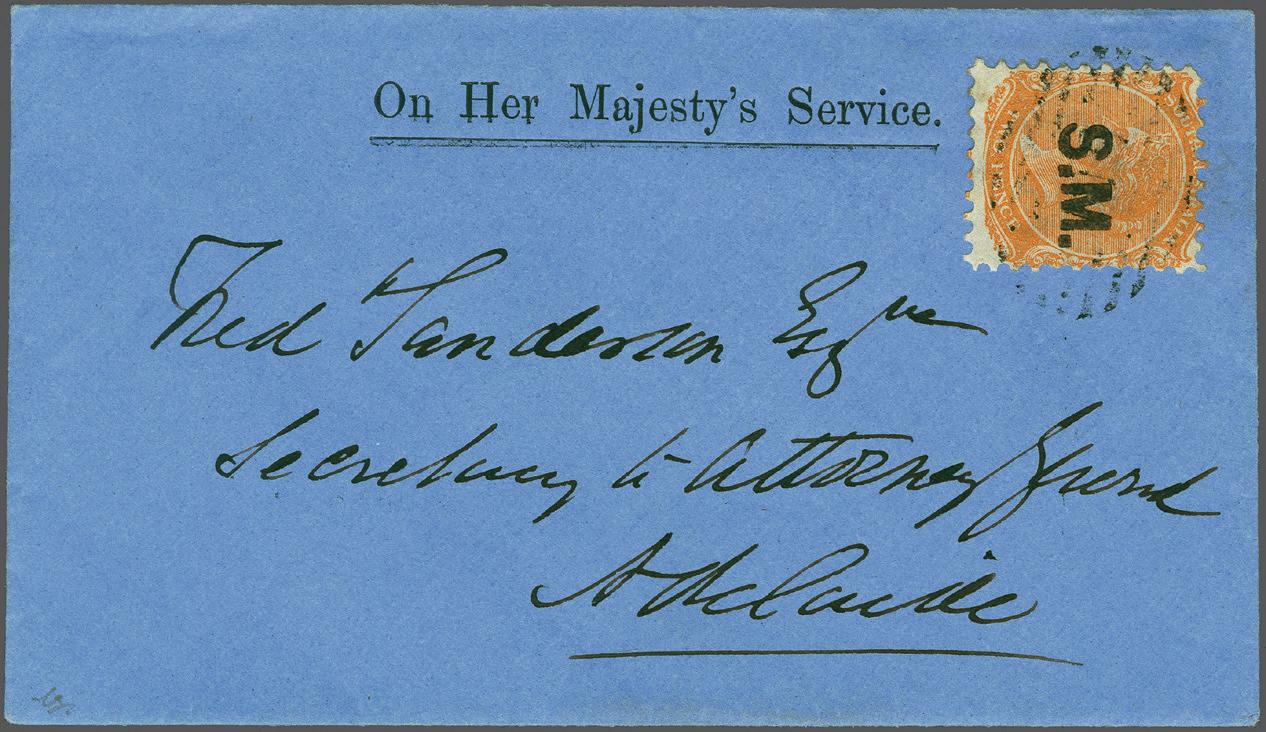 On Her Majesty's Service.
S.M.
PENCE
Fred Sanderson Esqre
Secretary to Attorney General
Adelaide